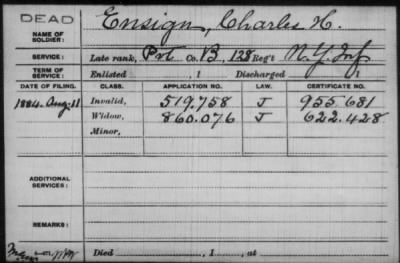 DEAD
NAME OF SOLDIER: Ensign, Charles H.
SERVICE: Late rank, Pvt Co. B, 128 Reg't N.Y. Inf
TERM OF SERVICE: Enlisted , 1 Discharged , 1
DATE OF FILING. CLASS. APPLICATION NO. LAW. CERTIFICATE NO.
1884-Aug. 11 Invalid, 519.758 J 955.681
Widow, 860.076 J 622.428
Minor,
ADDITIONAL SERVICES:
REMARKS:
Died , 1 , at